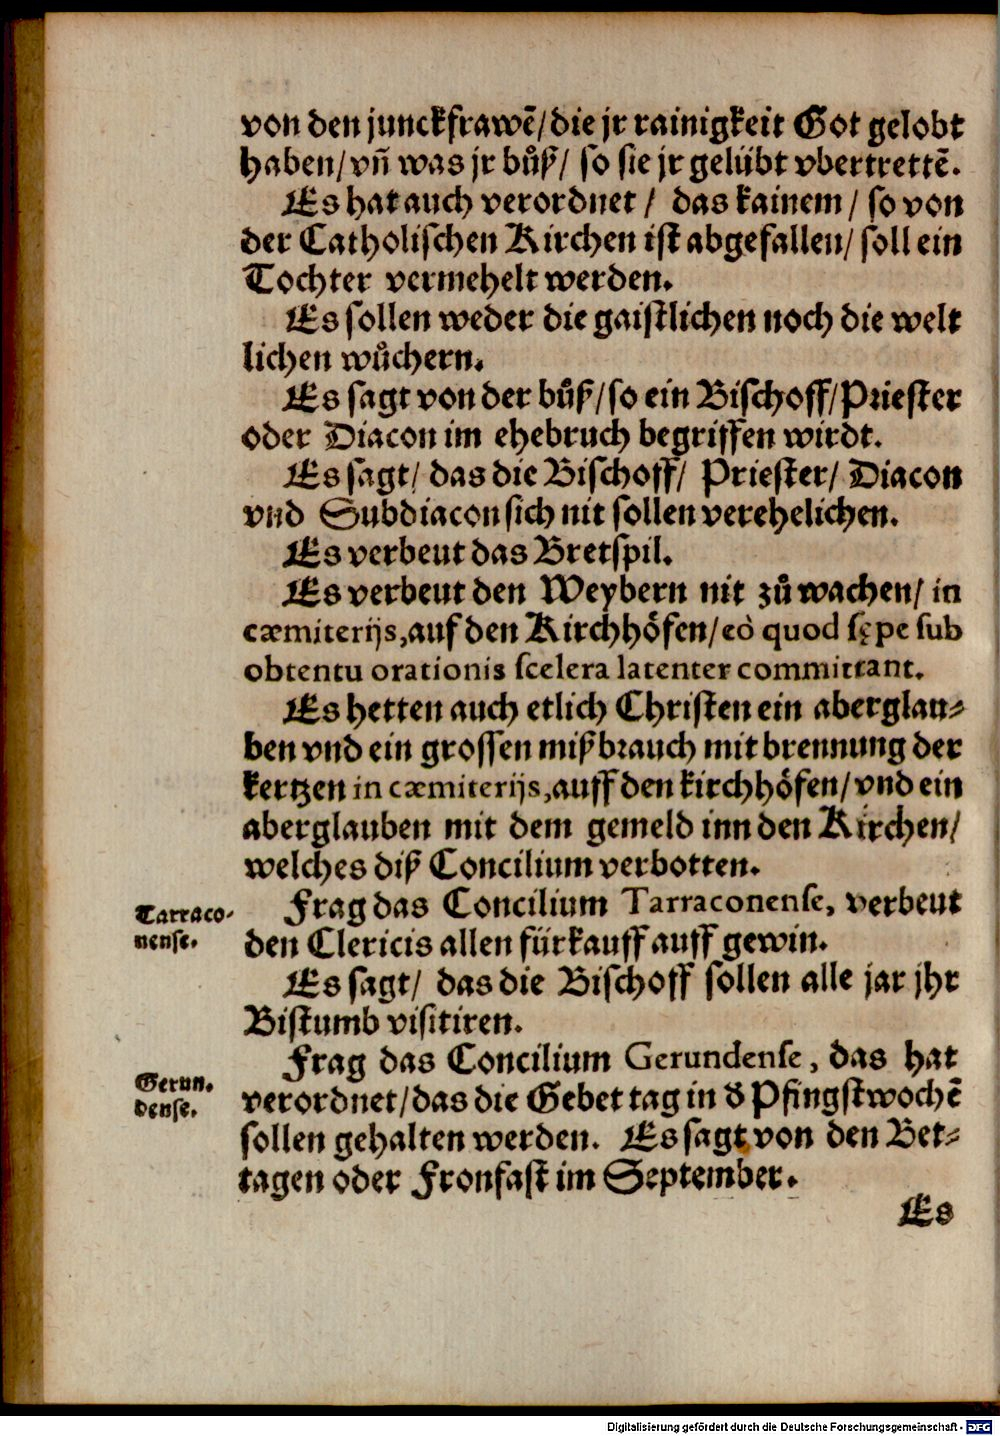 von den junckfrawẽ/die jr rainigkeit Got gelobt
haben/vñ was jr bůß/ so sie jr gelübt vbertrettẽ.
Es hat auch verordnet/ das kainem/ so von
der Catholischen Kirchen ist abgefallen/ soll ein
Tochter vermehelt werden.
Es sollen weder die gaistlichen noch die welt
lichen wůchern.
Es sagt von der bůß/so ein Bischoff/Priester
oder Diacon im ehebruch begriffen wirdt.
Es sagt/ das die Bischoff/ Priester/ Diacon
vnd Subdiacon sich nit sollen verehelichen.
Es verbeut das Bretspil.
Es verbeut den Weybern nit zů wachen/ in
cæmiterijs,auf den Kirchhöfen/eò quod sępe sub
obtentu orationis scelera latenter committant.
Es hetten auch etlich Christen ein aberglau-
ben vnd ein grossen mißbrauch mit brennung der
kertzen in cæmiterijs,auff den kirchhöfen/vnd ein
aberglauben mit dem gemeld inn den Kirchen/
welches diß Concilium verbotten.
Tarraco-
nense.
Frag das Concilium Tarraconense, verbeut
den Clericis allen fürkauff auff gewin.
Es sagt/ das die Bischoff sollen alle jar jhr
Bistumb visitiren.
Gerun-
dense.
Frag das Concilium Gerundense, das hat
verordnet/das die Gebet tag in d̕ Pfingstwochẽ
sollen gehalten werden. Es sagt von den Bet-
tagen oder Fronfast im September.
Es
Digitalisierung gefördert durch die Deutsche Forschungsgemeinschaft - DFG